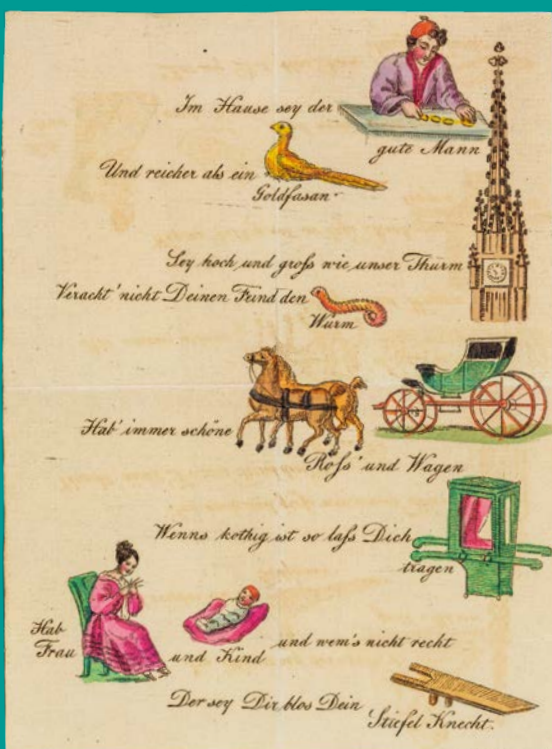 Im Hause sey der
gute Mann
Und reicher als ein
Goldfasan.
Sey hoch und groſs wie unser Thurm
Veracht' nicht Deinen Feind den
Wurm
Hab' immer schöne
Roſs' und Wagen
Wenns kothig ist so laſs Dich
tragen
Hab
Frau und Kind und wem's nicht recht
Der sey Dir blos Dein
Stiefel Knecht.